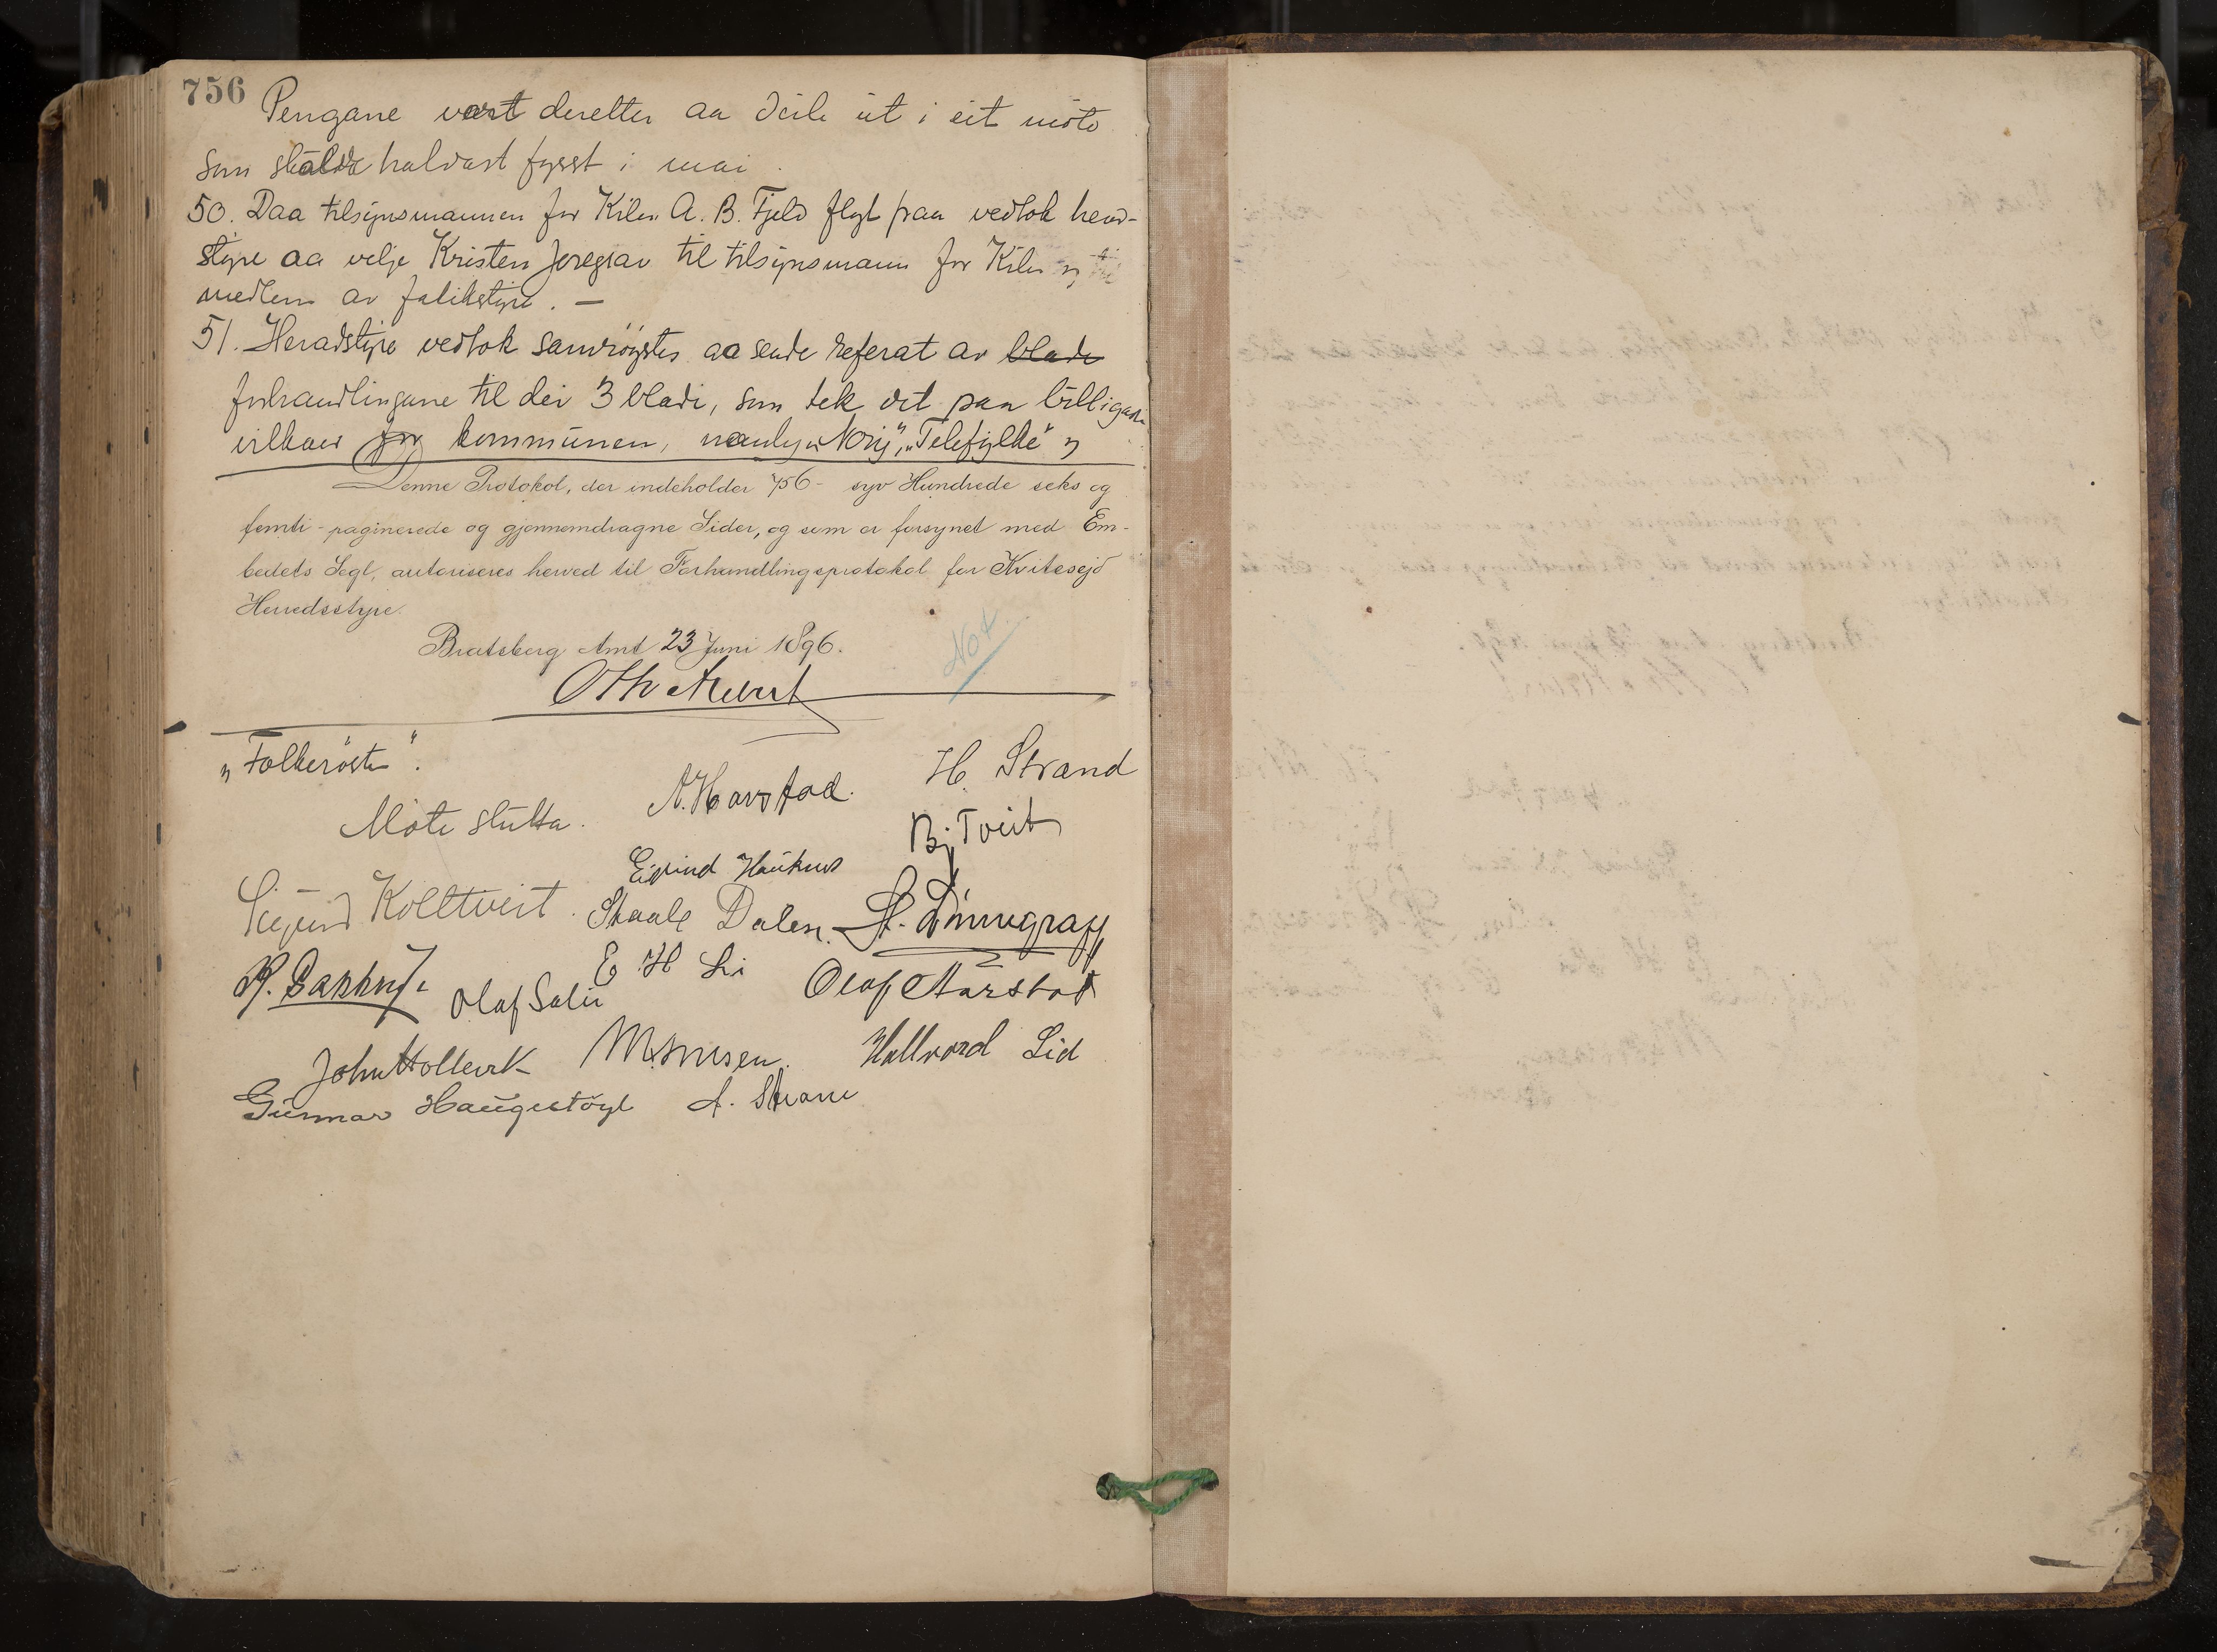 756
Pengane vart deretter aa deile ut i eit möte
som skulde haldast fysst i mai.
50. Daa tilsynsmannen for Kilen A. B. Fjeld flyt paa vedtok herad-
styre aa velje Kristen Joregrav til tilsynsmann for Kilen og til
medlem av
51. Heradstyre vedtok samröystes aa sende referat av blade
forhandlingane til dei 3 bladi, som tek det paa billigaste
vilkaar for kommunen, nemleg „Norig", „Telefylke" og
Denne Protokol, der indeholder 756 - syv Hundrede seks og
femti - paginerede og gjennemdragne Sider, og som er forsynet med Em-
bedets Segl, autoriseres herved til Forhandlingsprotokol for Kvitesejd
Herredsstyre.
Bratsberg Amt 23 Juni 1896.
„Folkerösten".
Möte slutta.
A. Havstad.
H. Strand
Bj Tveit
Eivind Haukum
Sigurd Kolltveit.
Staale Dalen.
E H Li
Olaf Aarstad
Olaf Salin
M. Simsen.
Hallvard Lid
Gunnar Haugestöyl